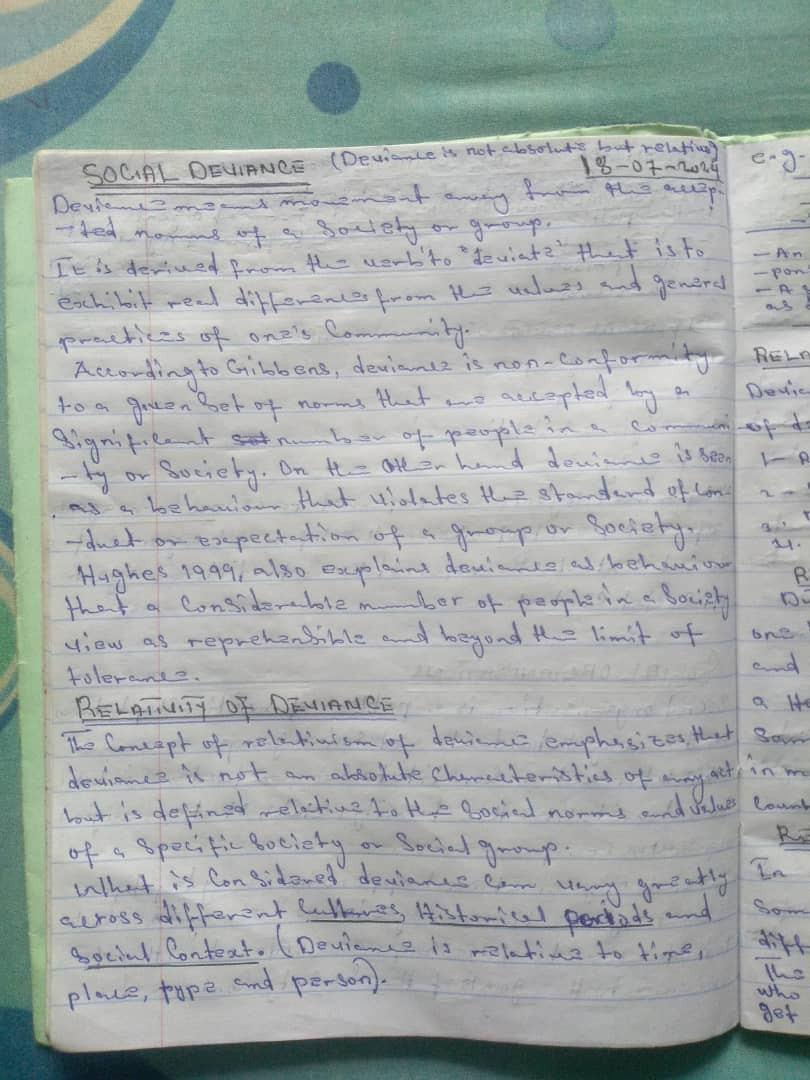 SOCIAL DEVIANCE (Deviance is not absolute but relative)
18-07-2024
Deviance means movement away from the accep-
-ted norms of a Society or group.
It is derived from the verb to "deviate" that is to
exhibit real differences from the values and general
practices of one's Community.
According to Gibbens, deviance is non-conformity
to a given Set of norms that are accepted by a
Significant number of people in a communi
-ty or Society. On the other hand deviance is seen
as a behaviour that violates the standard of con-
-duct or expectation of a group or Society.
Hughes 1999, also explains deviance as behaviour
that a Considerable number of people in a Society
view as reprehensible and beyond the limit of
tolerance.
RELATIVITY OF DEVIANCE
The Concept of relativism of deviance emphasizes that
deviance is not an absolute Characteristics of any act
but is defined relative to the Social norms and values
of a Specific Society or Social group.
What is Considered deviance can vary greatly
across different Cultures, Historical periods and
Social Context. (Deviance is relative to time,
place, type and person).
e.g-
- An
- pon
- A
as
RELA
Devia
of de
1-
2-
3.
4.
one
and
a
Sam
in m
Count
In
Som
diff
The
who
get